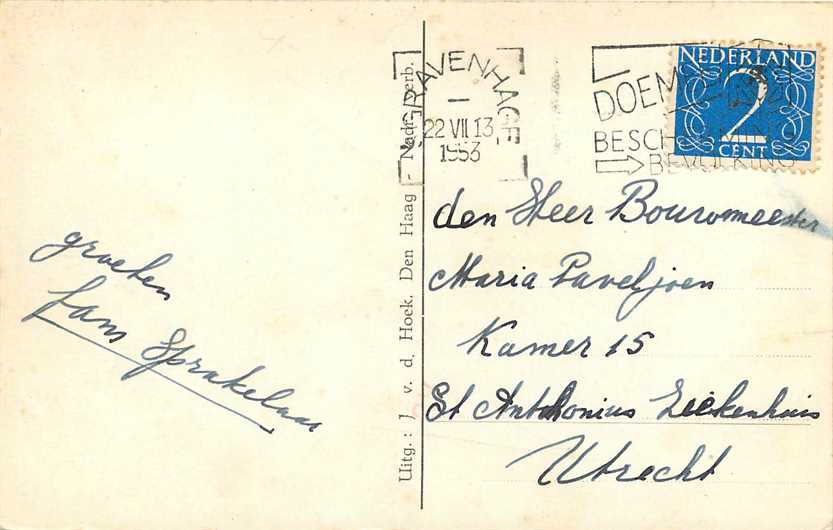 'S GRAVENHAGE
22 VII 13
1953
DOEM
BESCH
BEVOLKING
NEDERLAND
2
CENT
groeten
fam Sprakelaar
Uitg.: J. v. d. Hoek, Den Haag - Nadr. verb.
den Heer Bouwmeester
Maria Paveljoen
Kamer 15
St Antthonius Ziekenhuis
Utrecht